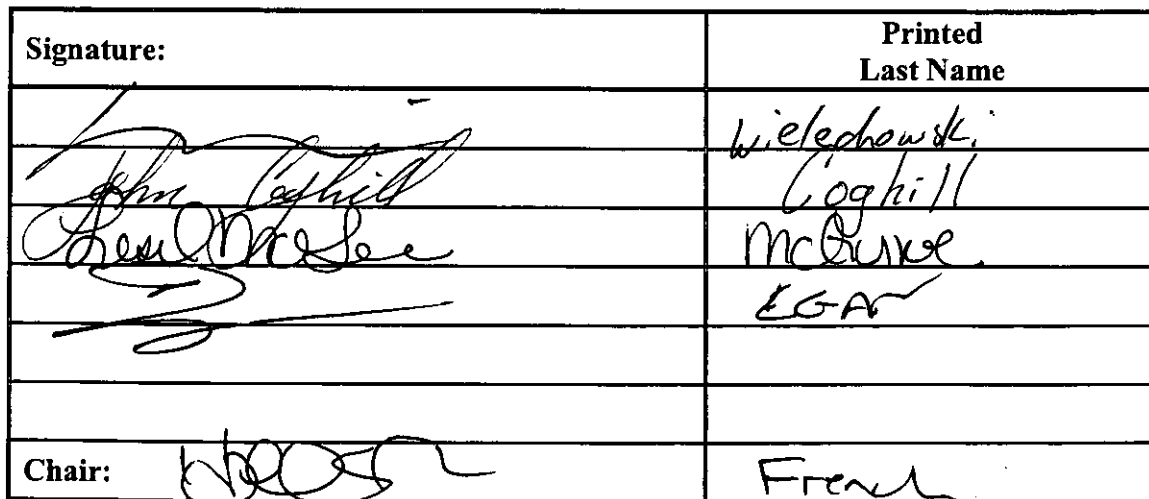 Signature: Printed
Last Name
Wielechowski
John Coghill Coghill
McGuire
EGAN
Chair: French